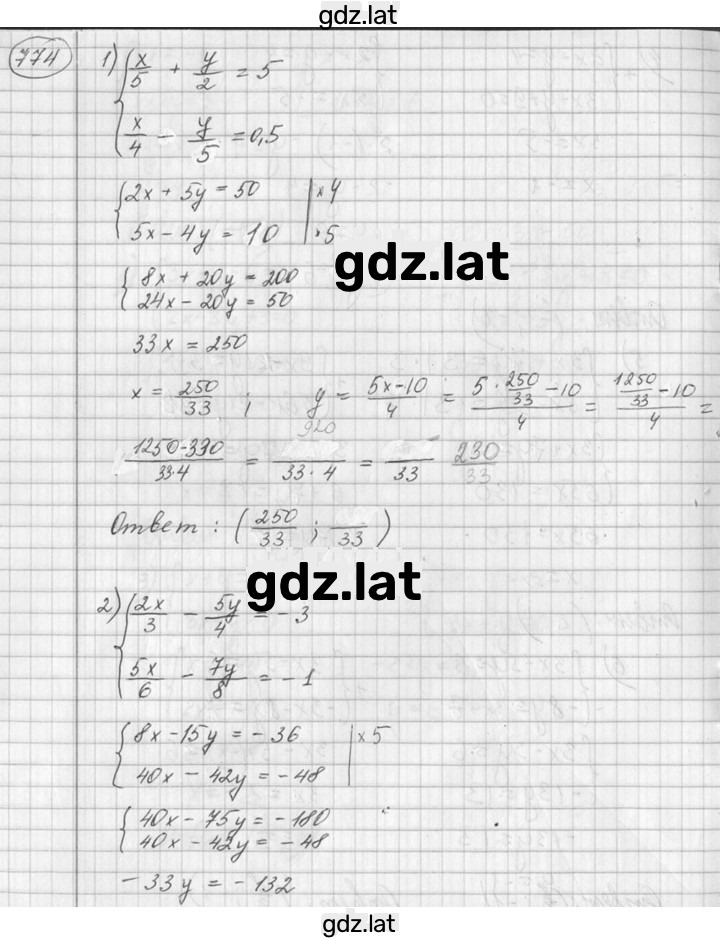 gdz.lat
774
1) { x/5 + y/2 = 5
x/4 - y/5 = 0,5
{ 2x + 5y = 50 | × 4
5x - 4y = 10 | · 5
gdz.lat
{ 8x + 20y = 200
24x - 20y = 50
33x = 250
x = 250/33 ; y = (5x-10)/4 = (5 · 250/33 - 10)/4 = (1250/33 - 10)/4 =
(1250-330)/(33·4) = 920/(33·4) = /33 230/33
Ответ : (250/33 ; /33)
gdz.lat
2) { 2x/3 - 5y/4 = -3
5x/6 - 7y/8 = -1
{ 8x - 15y = -36 | × 5
40x - 42y = -48
{ 40x - 75y = -180
40x - 42y = -48
-33y = -132
gdz.lat